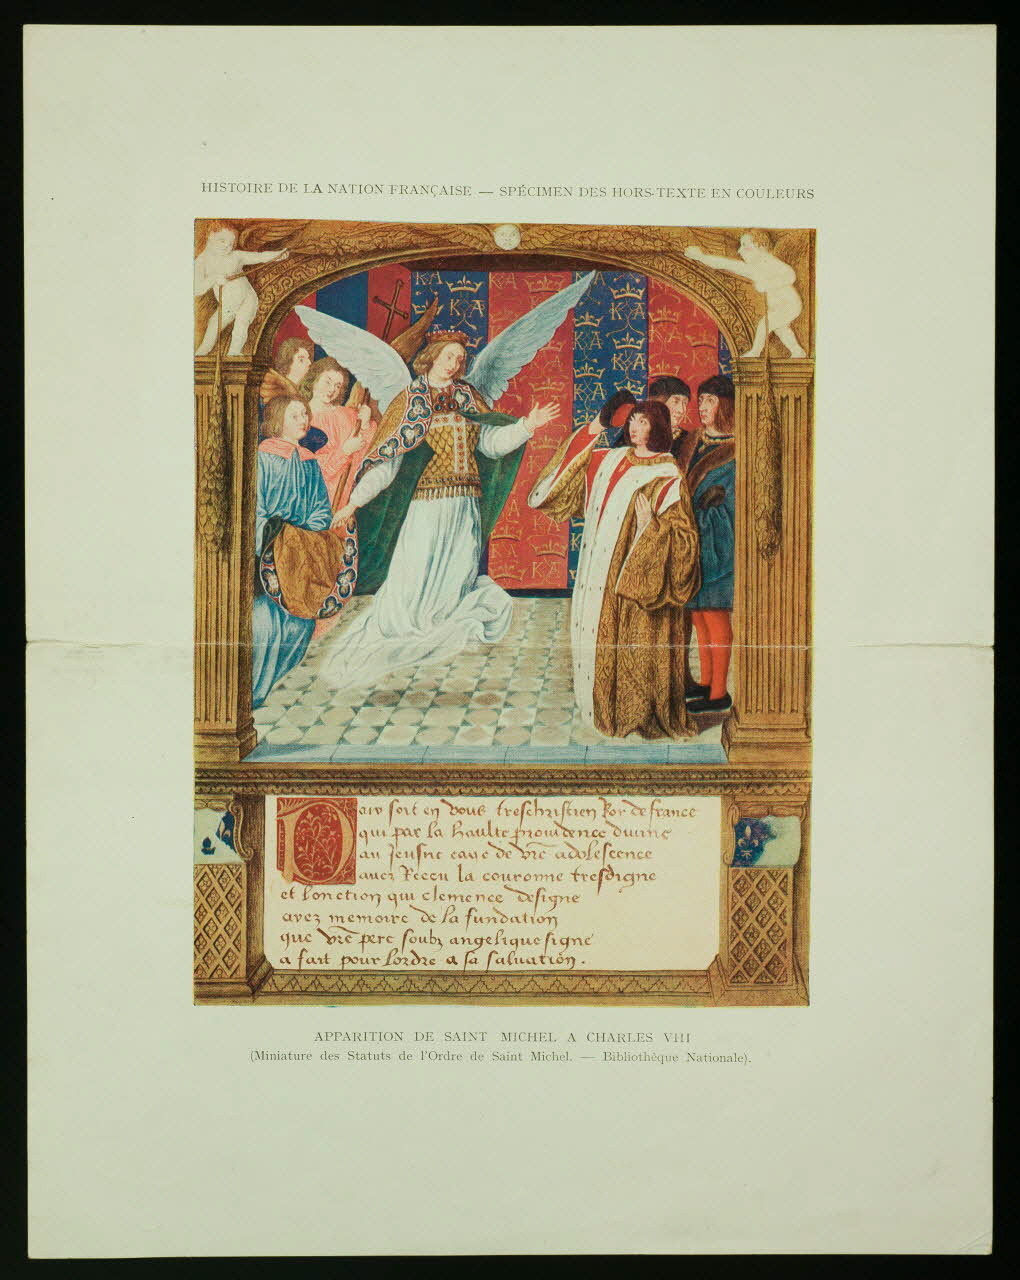 HISTOIRE DE LA NATION FRANÇAISE — SPÉCIMEN DES HORS-TEXTE EN COULEURS
KA KA KA KA
Daio soit en vous treschristien Roy de france
qui par la haulte prouidence diuine
au Jeusne eage de vr̃e adolescence
auez Receu la couronne tresdigne
et lonction qui clemence designe
ayez memoire de la fundation
que vr̃e pere soubz angelique signe
a fait pour lordre a sa saluation.
APPARITION DE SAINT MICHEL A CHARLES VIII
(Miniature des Statuts de l'Ordre de Saint Michel. — Bibliothèque Nationale).